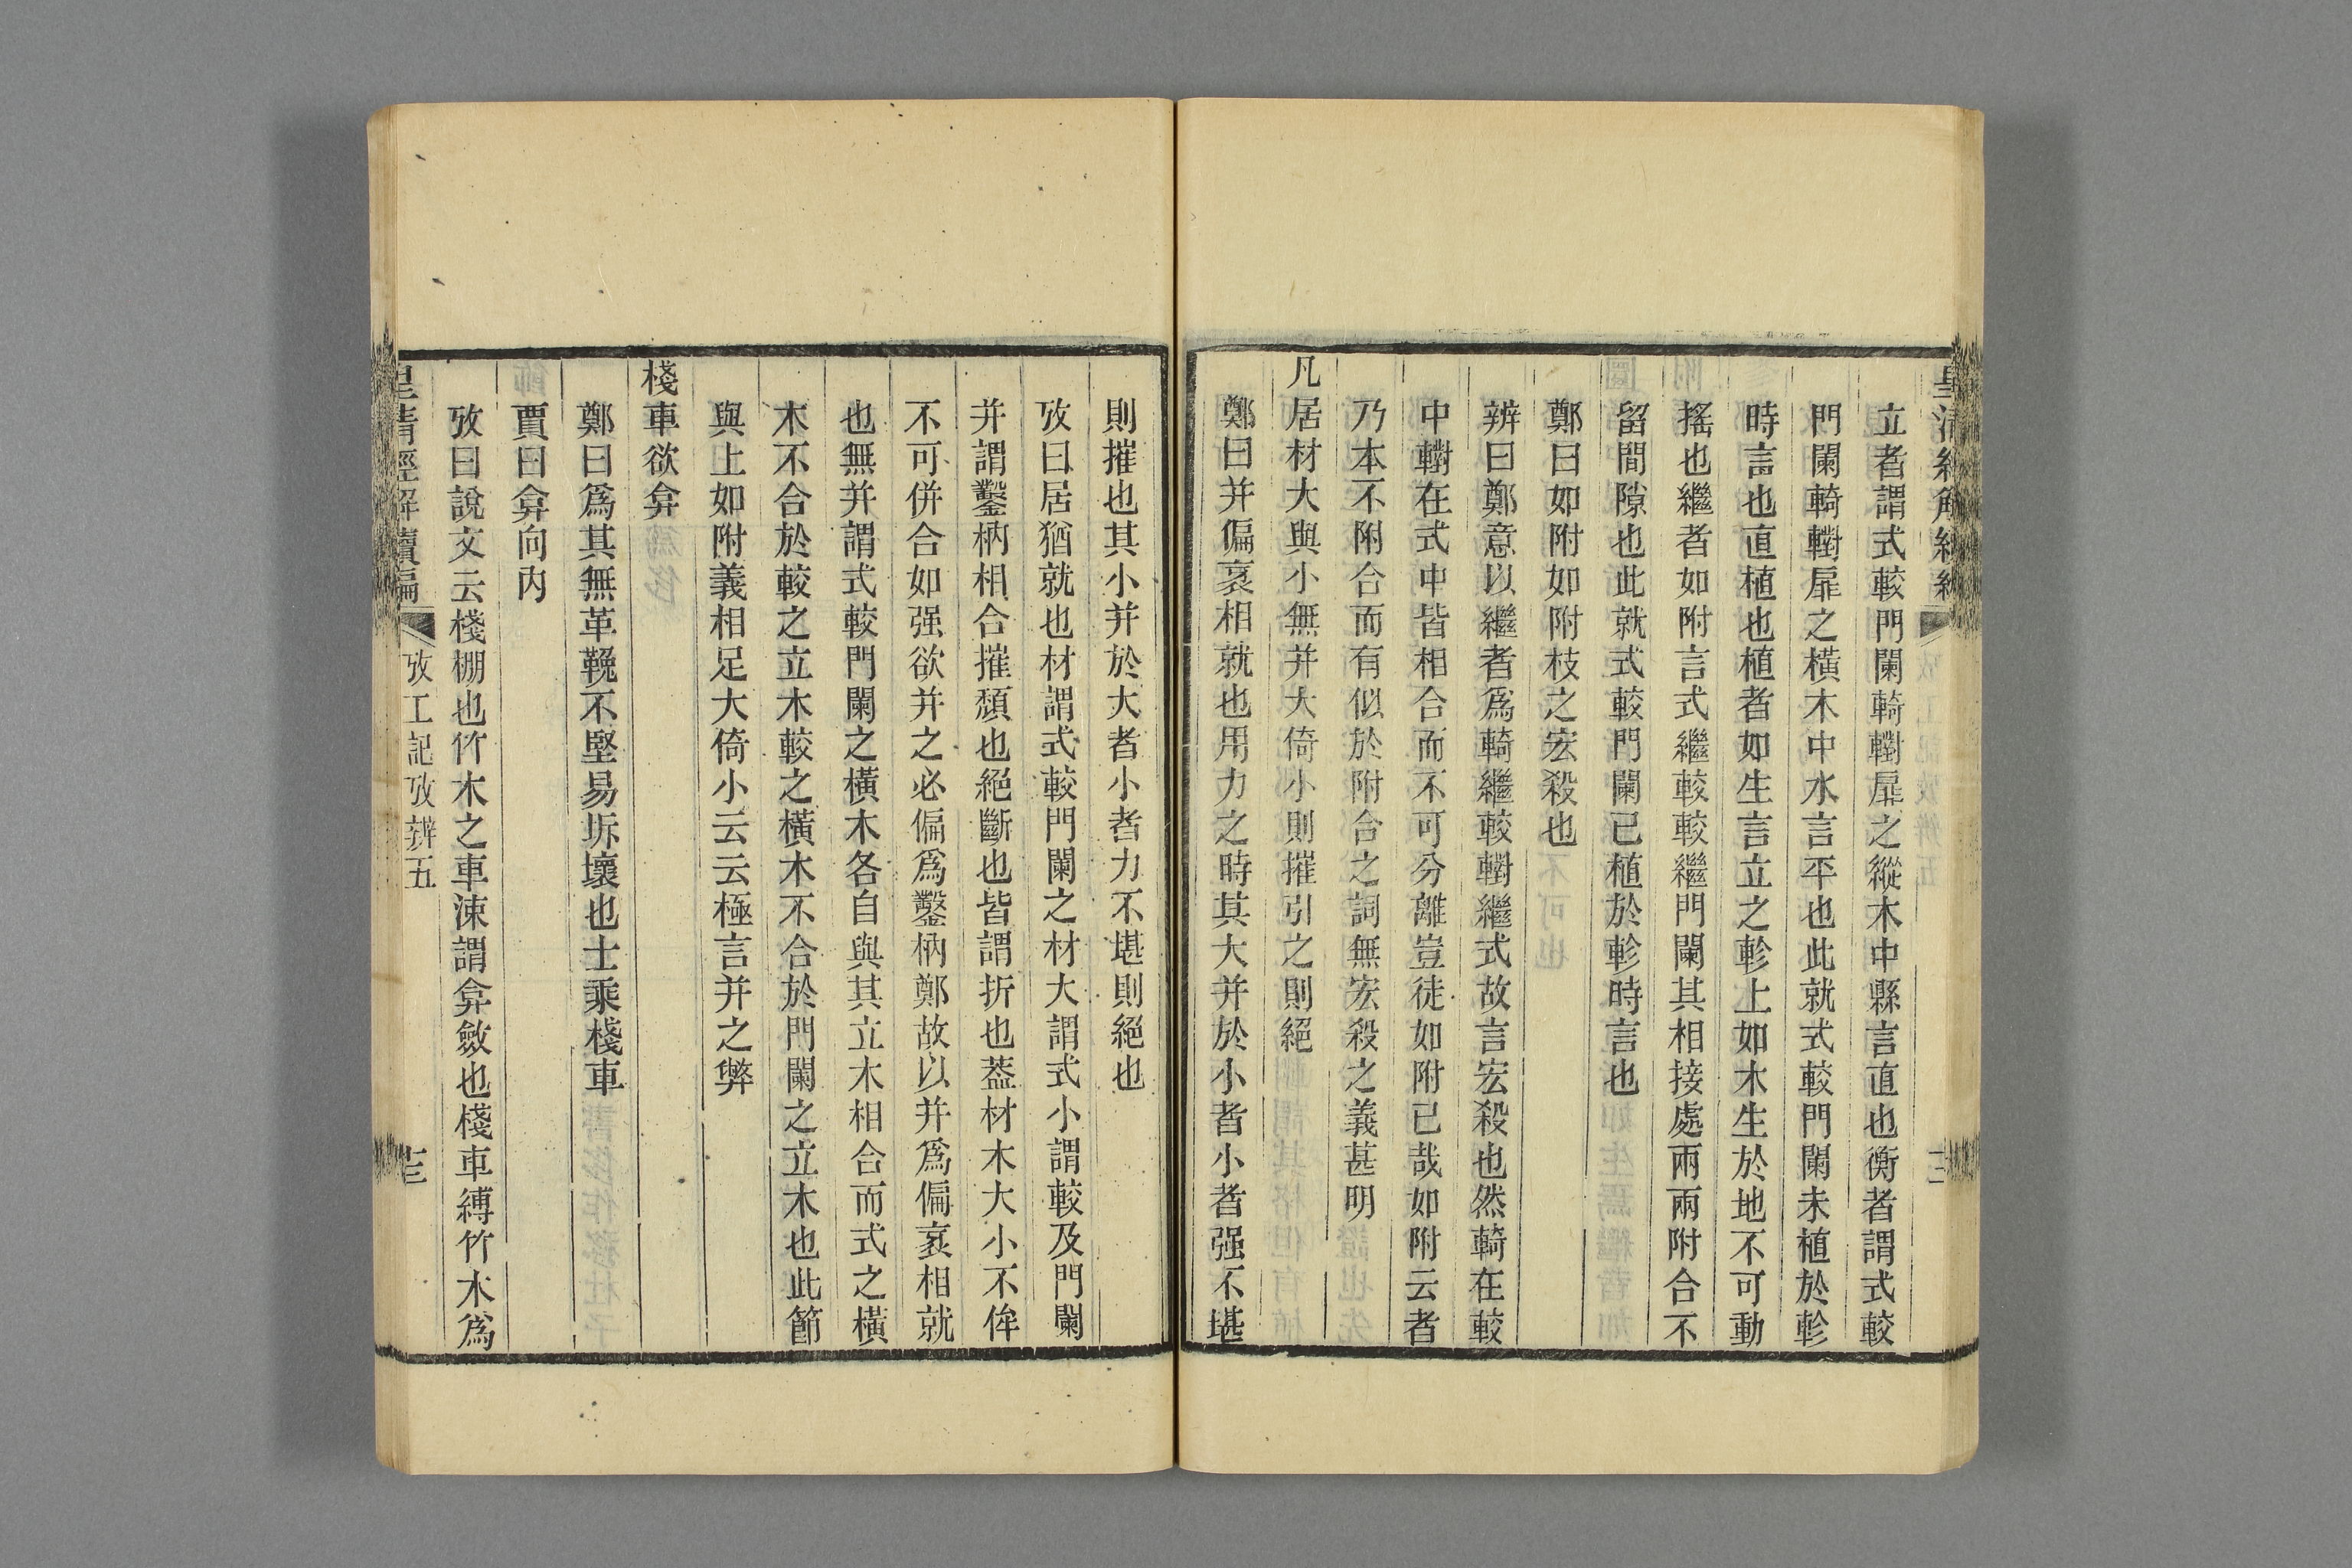 立者謂式較門闑輢轛扉之縱木中縣言直也衡者謂式較
門闑輢轛扉之橫木中水言平也此就式較門闑未植於軫
時言也直植也植者如生言立之軫上如木生於地不可動
搖也繼者如附言式繼較較繼門闑其相接處兩兩附合不
留間隙也此就式較門闑已植於軫時言也
鄭曰如附如附枝之宏殺也
辨曰鄭意以繼者爲輢繼較轛繼式故言宏殺也然輢在較
中轛在式中皆相合而不可分離豈徒如附已哉如附云者
乃本不附合而有似於附合之詞無宏殺之義甚明
凡居材大與小無并大倚小則摧引之則絕
鄭曰并偏衺相就也用力之時其大并於小者小者强不堪
則摧也其小并於大者小者力不堪則絕也
攷曰居猶就也材謂式較門闑之材大謂式小謂較及門闑
并謂鑿枘相合摧頹也絕斷也皆謂折也葢材木大小不侔
不可併合如强欲并之必偏爲鑿枘鄭故以并爲偏衺相就
也無并謂式較門闑之橫木各自與其立木相合而式之橫
木不合於較之立木較之橫木不合於門闑之立木也此節
與上如附義相足大倚小云云極言并之弊
棧車欲弇
鄭曰爲其無革鞔不堅易坼壞也士乘棧車
賈曰弇向內
攷曰說文云棧棚也竹木之車涷謂弇斂也棧車縛竹木爲
皇清經解續編
攷工記攷辨五